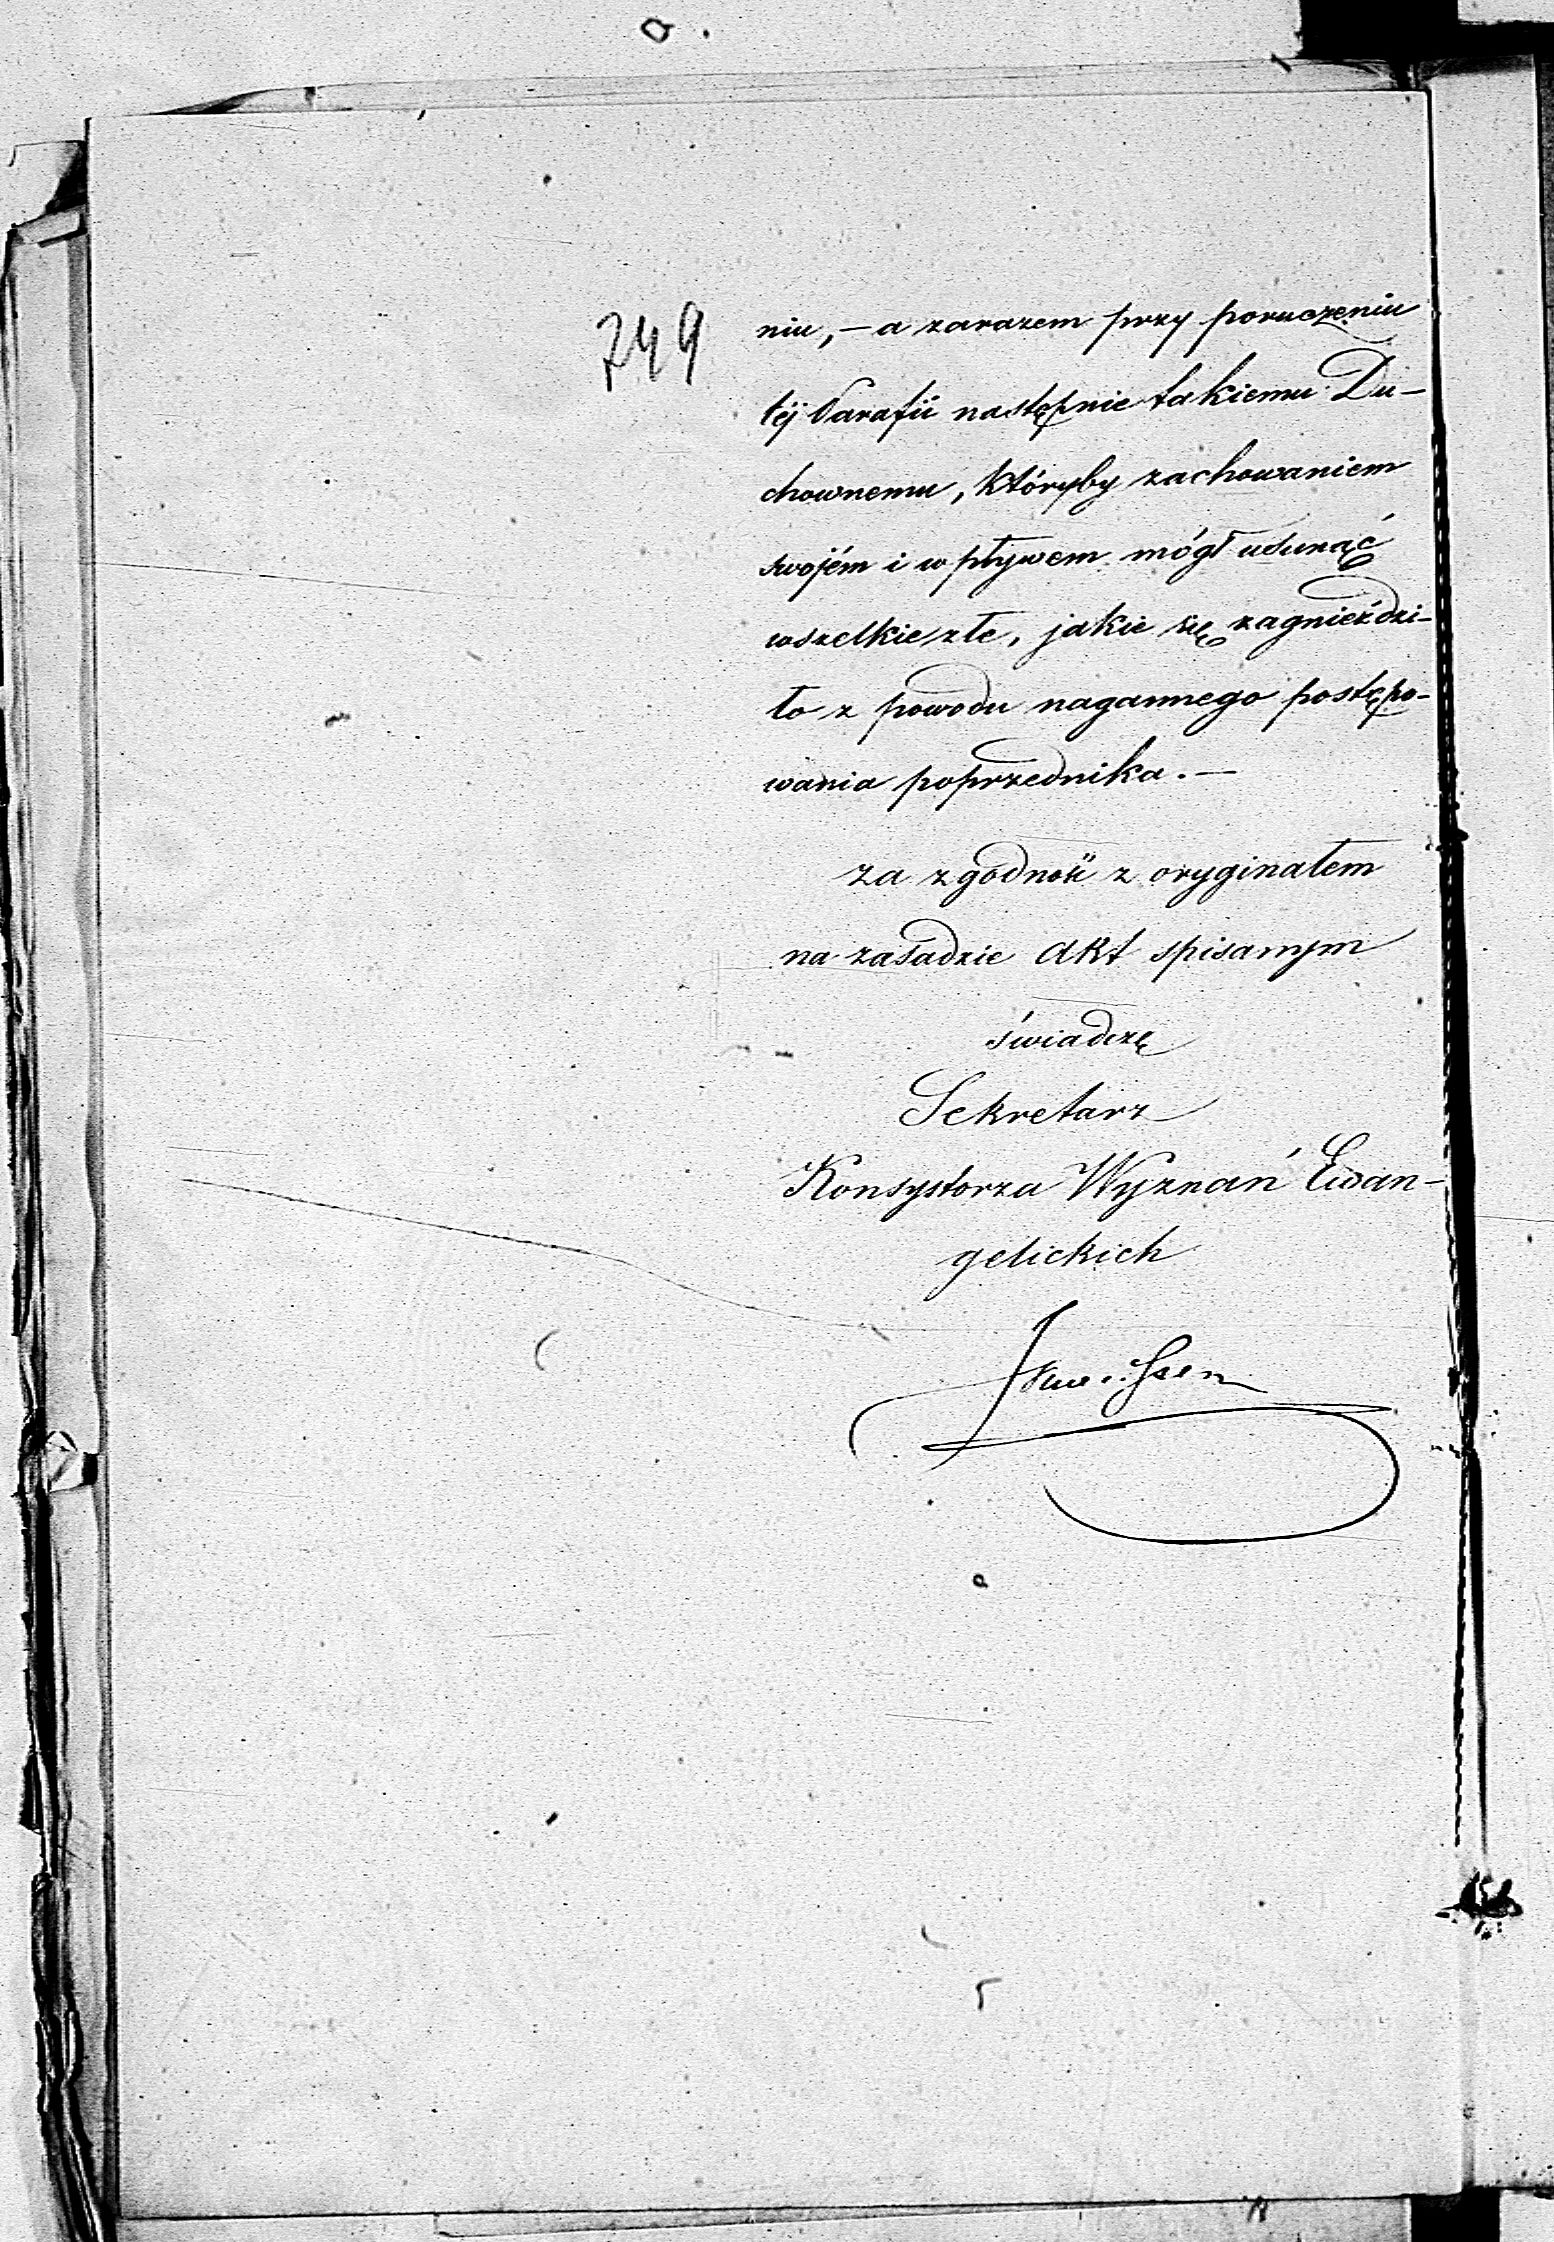 749
niu, — a zarazem przy poruczeniu
téj Parafii następnie takiemu Du-
chownemu, któryby zachowaniem
swojém i wpływem mógł usunąć
wszelkie złe, jakie się zagnieździ-
ło z powodu nagannego postępo-
wania poprzednika. —
za zgodność z oryginałem
na zasadzie akt spisanym
świadczę
Sekretarz
Konsystorza Wyznań Ewan-
gelickich